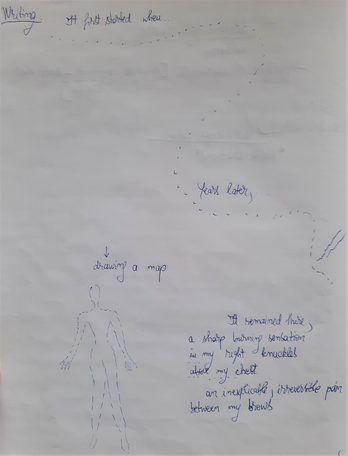 Writing
It first started when
Years later,
↓
drawing a map
It remained here,
a sharp burning sensation
in my right knuckles
above my chest
an inexplicable, irreversible pain
between my brows